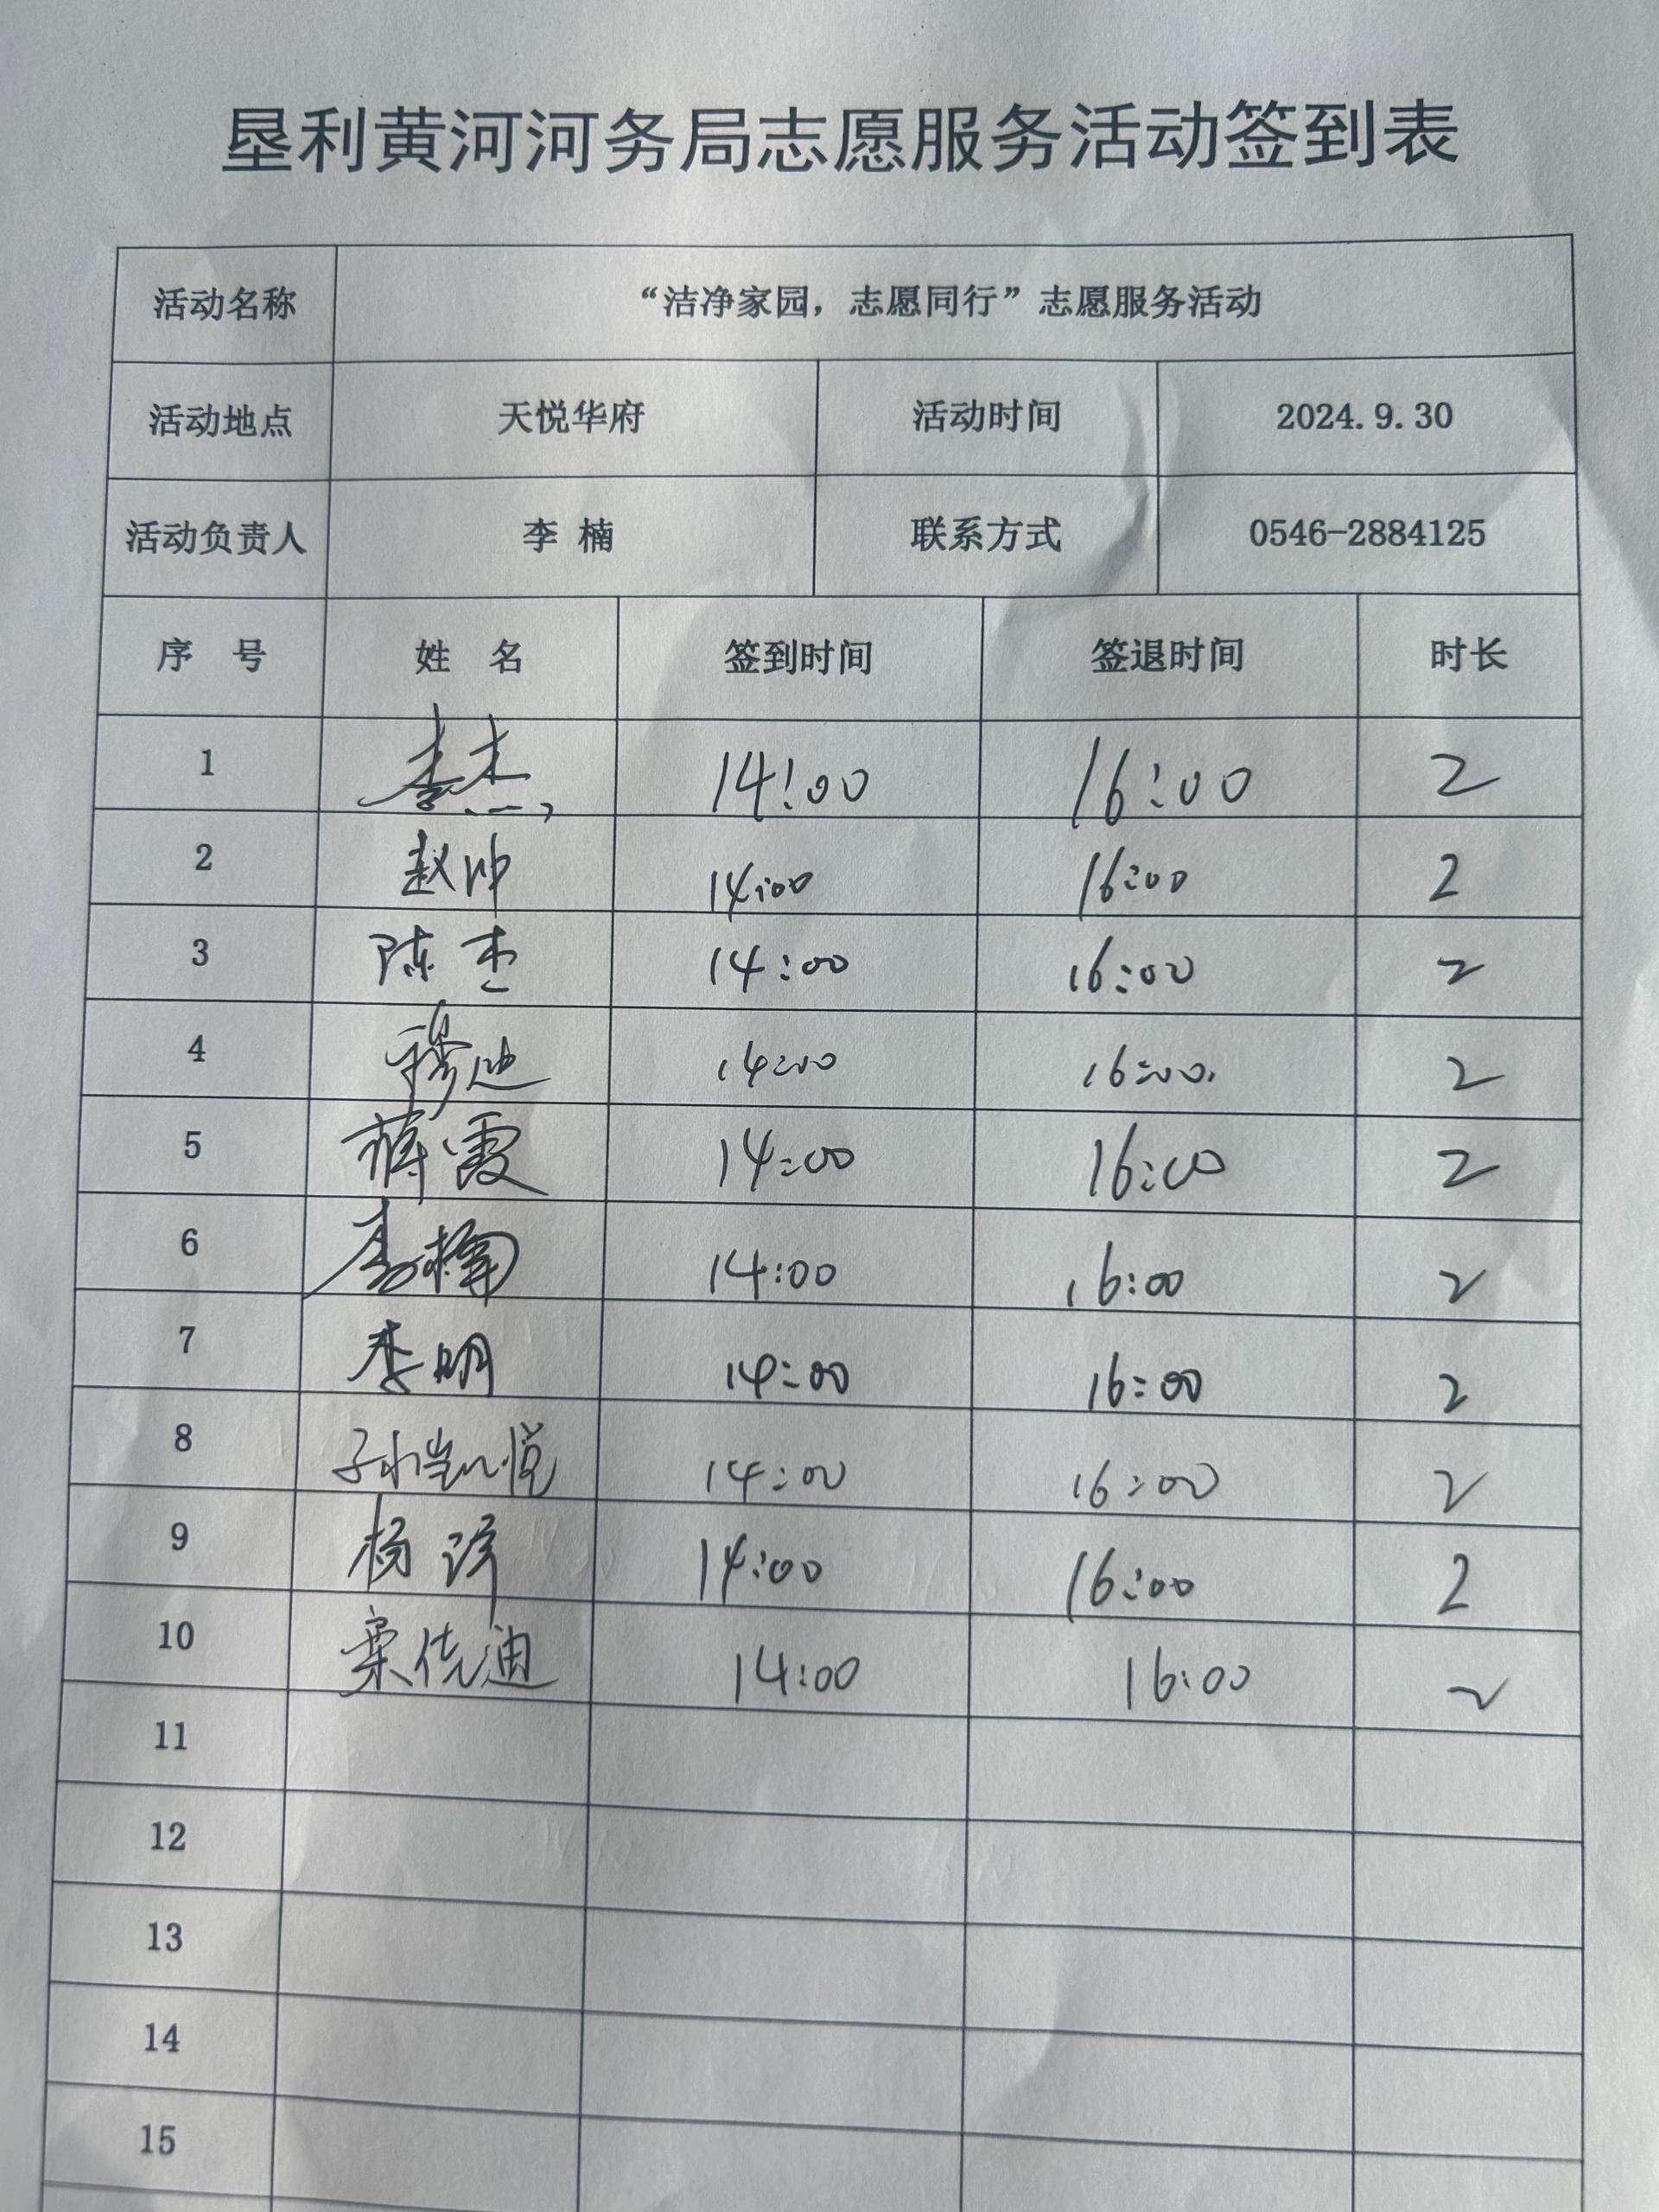 垦利黄河河务局志愿服务活动签到表
活动名称 “洁净家园，志愿同行”志愿服务活动
活动地点 天悦华府 活动时间 2024.9.30
活动负责人 李 楠 联系方式 0546-2884125
序 号 姓 名 签到时间 签退时间 时长
1 李杰 14:00 16:00 2
2 赵坤 14:00 16:00 2
3 陈杰 14:00 16:00 2
4 穆迪 14:00 16:00 2
5 蒋霞 14:00 16:00 2
6 李楠 14:00 16:00 2
7 李明 14:00 16:00 2
8 孙凯悦 14:00 16:00 2
9 杨 14:00 16:00 2
10 14:00 16:00 2
11
12
13
14
15